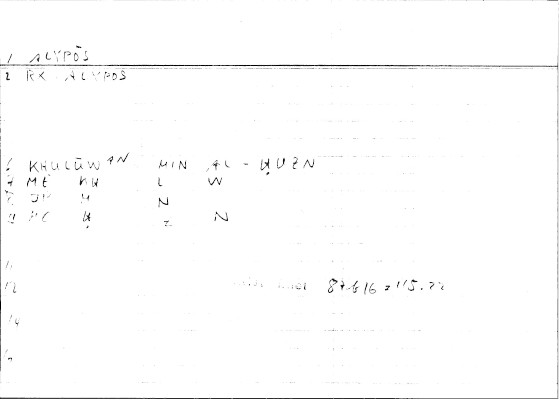 1 ALYPŌS
2 RK ALYPOS
6 KHULŪWAN MIN AL-ḤUZN
7 ME KH L W
8 M N
9 ME Ḥ Z N
11
12 87.616 = 115.22
14